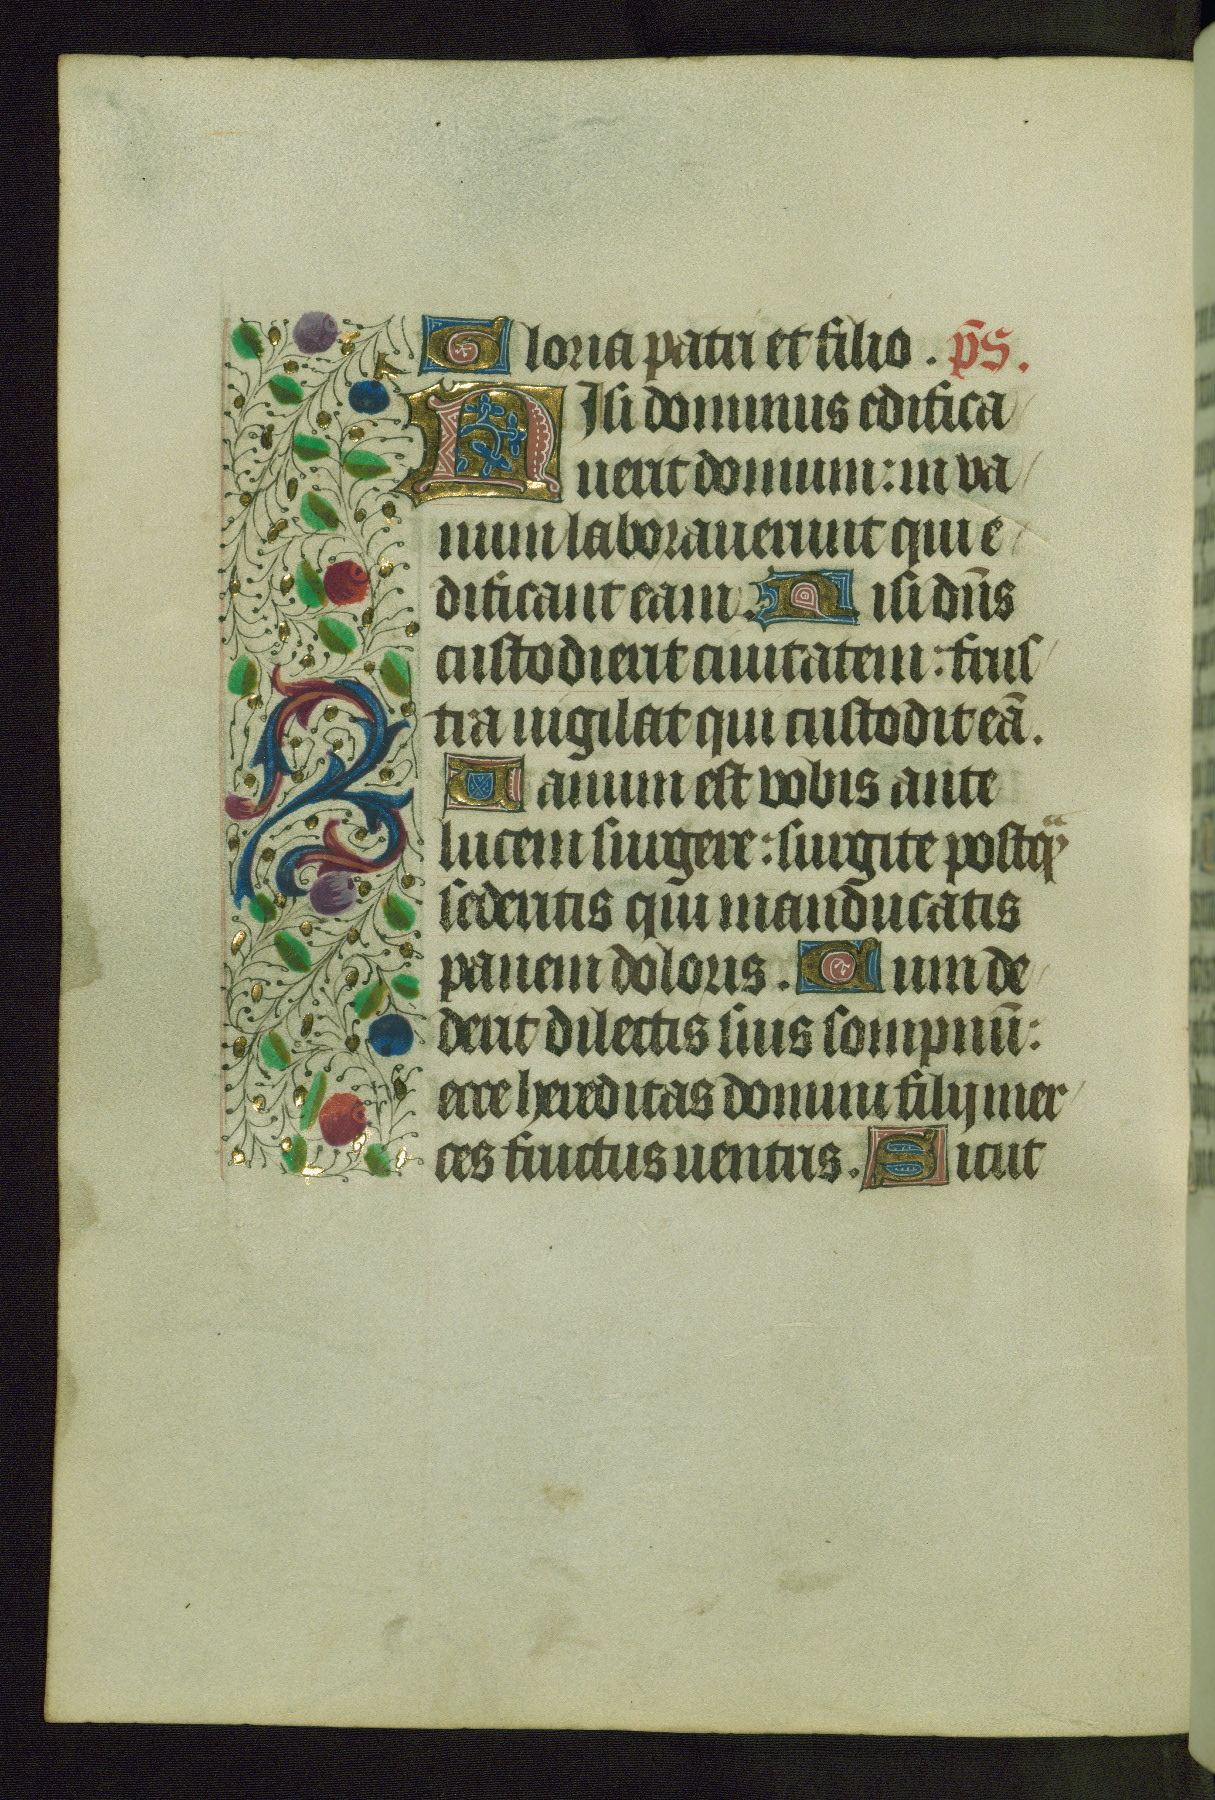 Gloria patri et filio. p̄s.
Nisi dominus edifica
uerit domum: in va
num laborauerunt qui e
dificant eam. Nisi dn̄s
custodierit ciuitatem: frus
tra uigilat qui custodit eā.
Uanum est vobis ante
lucem surgere: surgite postq̄
sederitis qui manducatis
panem doloris. Cum de
derit dilectis suis sompnū:
ecce hereditas domini filij mer
ces fructus uentris. Sicut